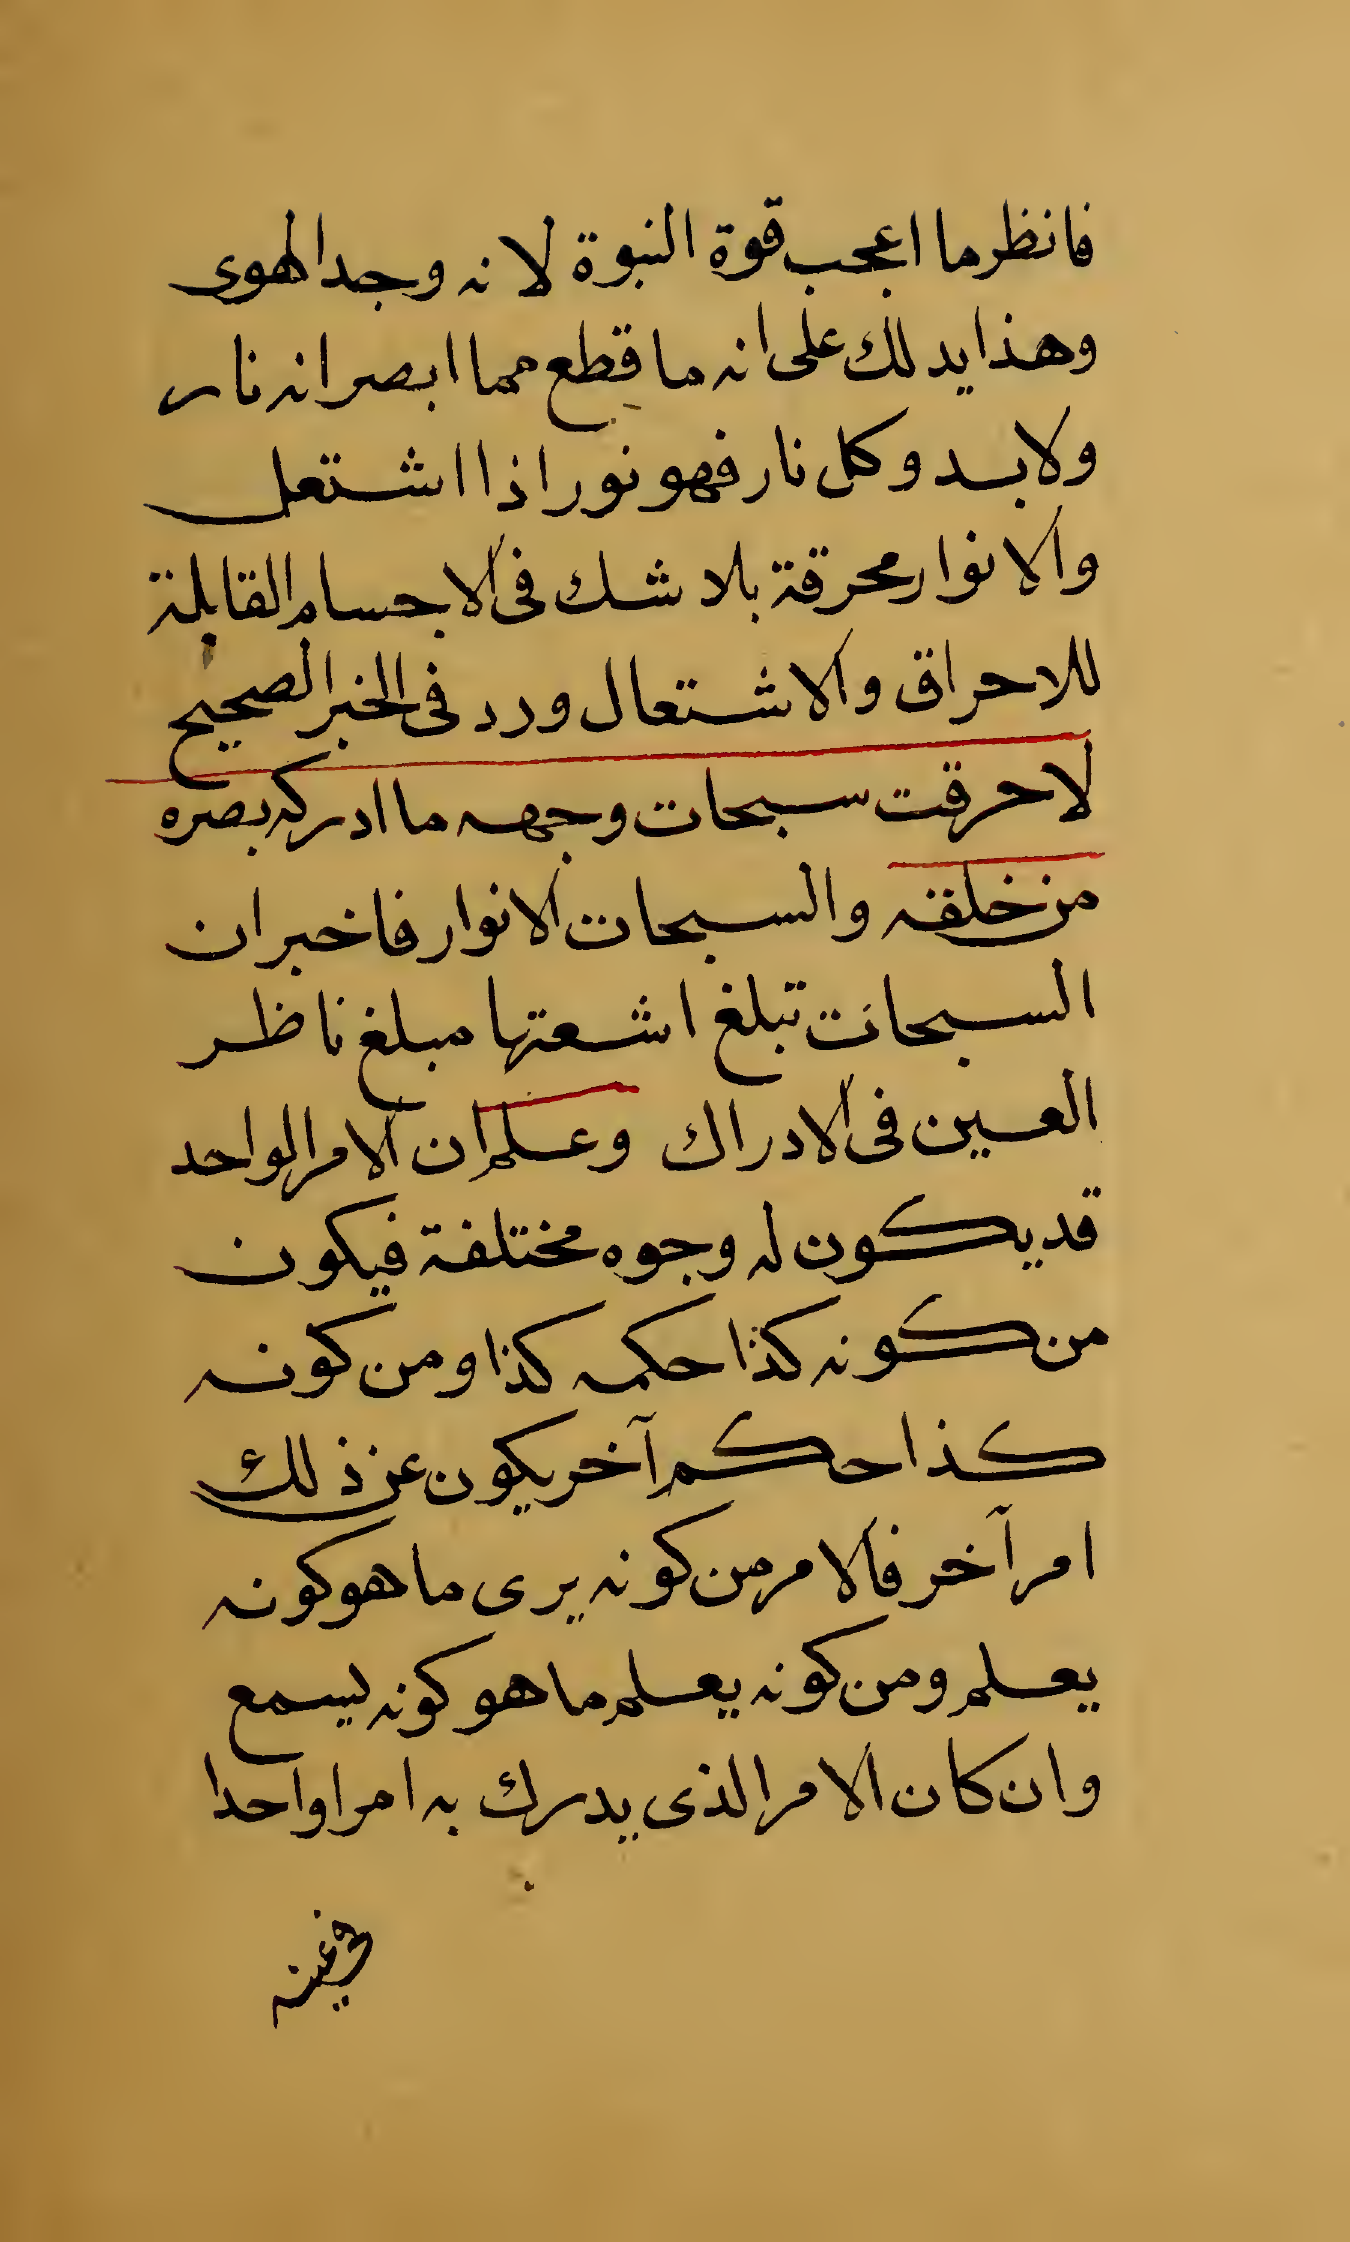 فانظر ما اعجب قوة النبوة لانه وجد الهوى
وهذا يدلك على انه ما قطع مما ابصر انه نار
ولا بد وكل نار فهو نور اذا اشتعل
والانوار محرقة بلا شك فى الاجسام القابلة
للاحراق والاشتعال ورد فى الخبر الصحيح
لاحرقت سبحات وجهه ما ادركه بصره
من خلقه والسبحات الانوار فاخبر ان
السبحات تبلغ اشعتها مبلغ ناظر
العين فى الادراك وعلم ان الامر الواحد
قد يكون له وجوه مختلفة فيكون
من كونه كذا حكمه كذا ومن كونه
كذا حكم آخر يكون عن ذلك
امر آخر فالامر من كونه يرى ما هو كونه
يعلم ومن كونه يعلم ما هو كونه يسمع
وان كان الامر الذى يدرك به امرا واحدا
فى عينه